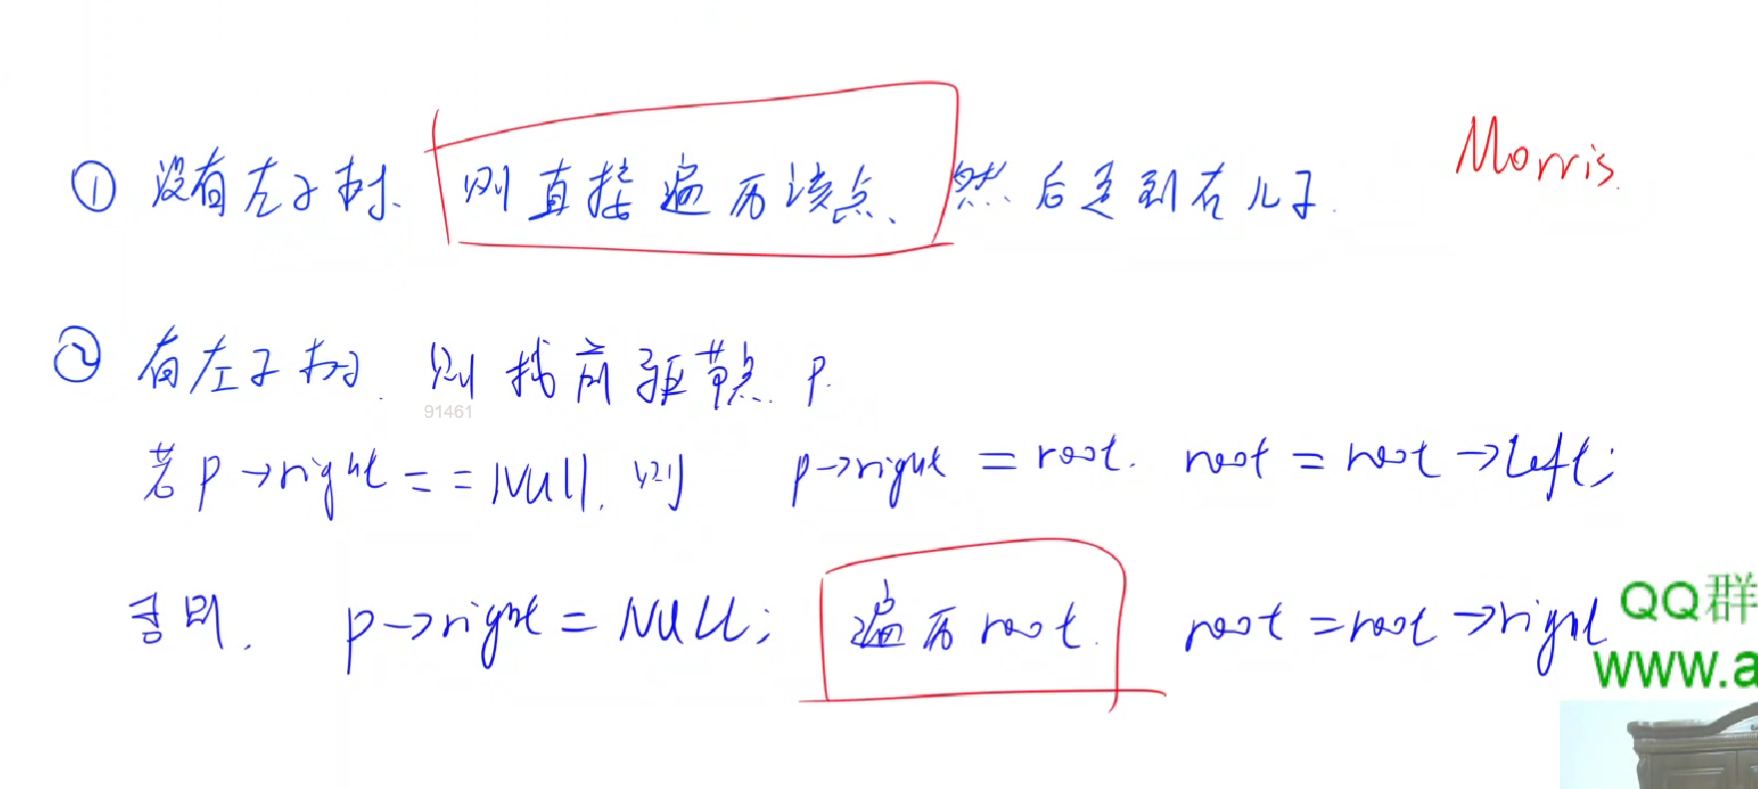 ① 没有左子树、则直接遍历该点、然后走到右儿子. Morris.
② 有左子树. 则找前驱节点 p.
91461
若 p->right == Null, 则 p->right = root. root = root->left;
否则, p->right = NULL; 遍历 root. root = root->right
QQ群
www.a